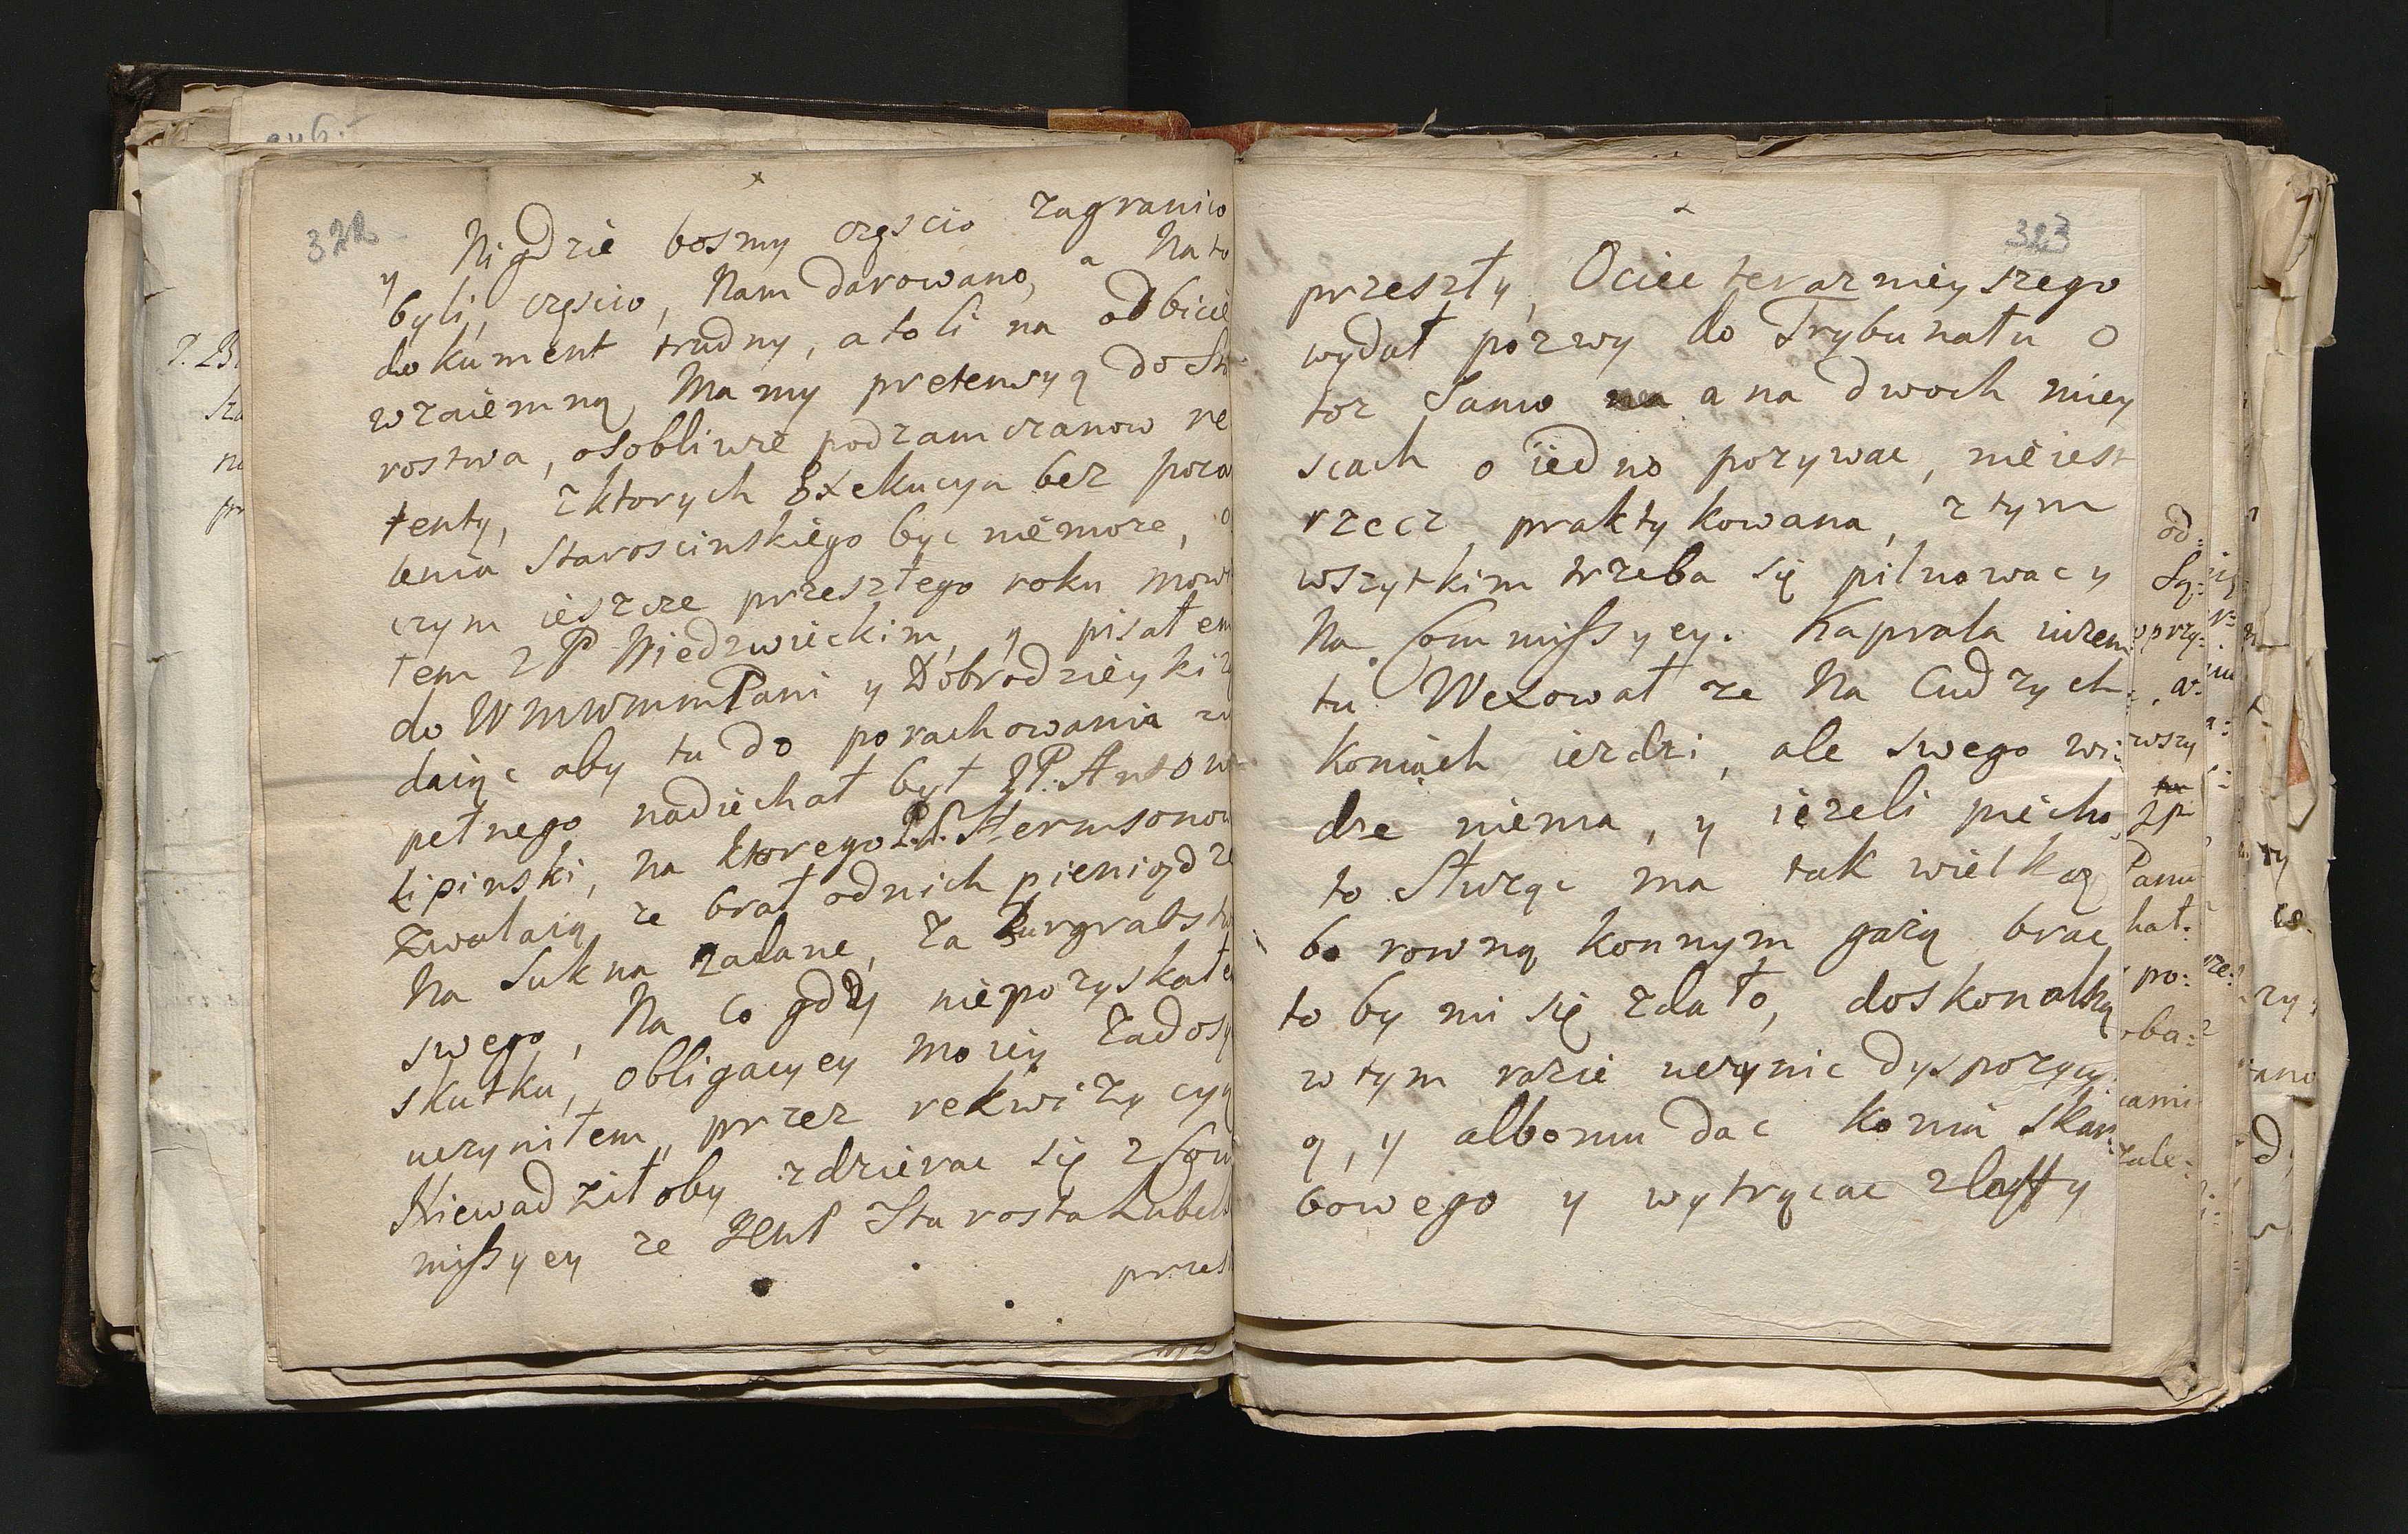 322
y Nigdzie bosmy częscio zagranico
byli, częscio, Nam darowano, a Na to
dokument trudny, a toli na odbicie
wzaiemną Mamy pretensyą do Sta
rostwa, osobliwie podzamczanow re
tenty, z ktorych Exekucya bez pozwo
lenia Staroscinskiego byc niemoze, o
czym ieszcze przeszłego roku mowi
łem z P Niedzwieckim, y pisałem
do WMWMMPani y Dobrodzieyki zą
daiąc aby tu do porachowania zu
pełnego nadiechał był JP. Anton
Lipinski, na ktorego P.P. Hermsonow
zwalaią ze brał odnich pieniądze
Na Sukna zadane, za Burgrabstwa
swego, Na Co gdy niepozyskałe
skutku, obligacyey moiey zadosy
uczyniłem, przez rekwizycyą
Niewadziłoby zdzierac się z Com
missyey ze JEMP Starosta Lubels
przes
323
przeszły, Ociec teraznieyszego
wydał pozwy do Trybunału o
toz Samo a na dwoch miey
scach o iedno pozywac, nie iest
rzecz praktykowana, z tym
wszytkim trzeba się pilnowac y
Na Commissyey. Kaprala iuzem
tu Wexował ze Na Cudzych
Koniach iezdzi, ale swego wi:
dze niema, y iezeli piecho
to Słuzyc ma tak wielką
bo rowną konnym gazą brac
to by mi się zdało, doskonalszą
w tym razie uczynic dyspozycy
ą, y albo mu dac konia skar:
bowego y wytrącac z laffy
od:
Są:
przy:
a:
wszy
zpi
Panu
hał:
po:
oba:
cami
zale: